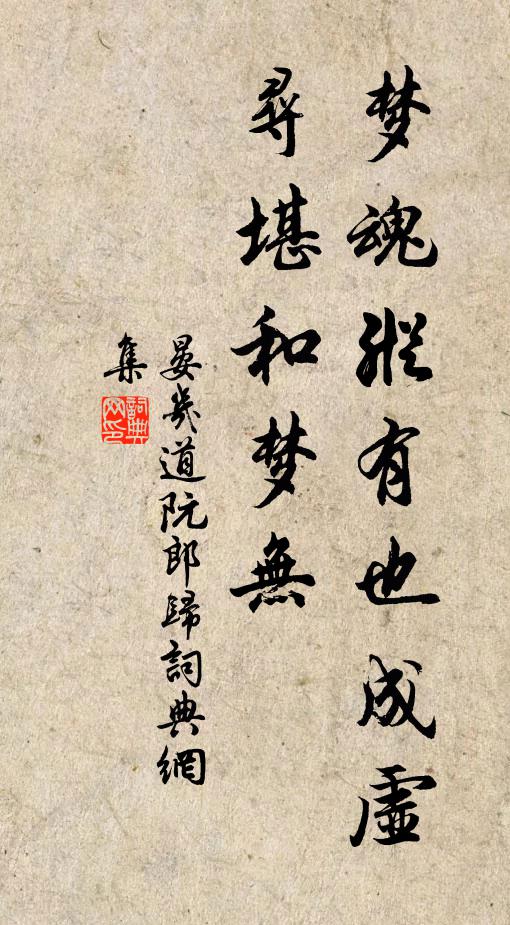 梦魂縱有也成虛
尋堪和梦無
晏幾道阮郎歸詞典網
集
詞典
网印